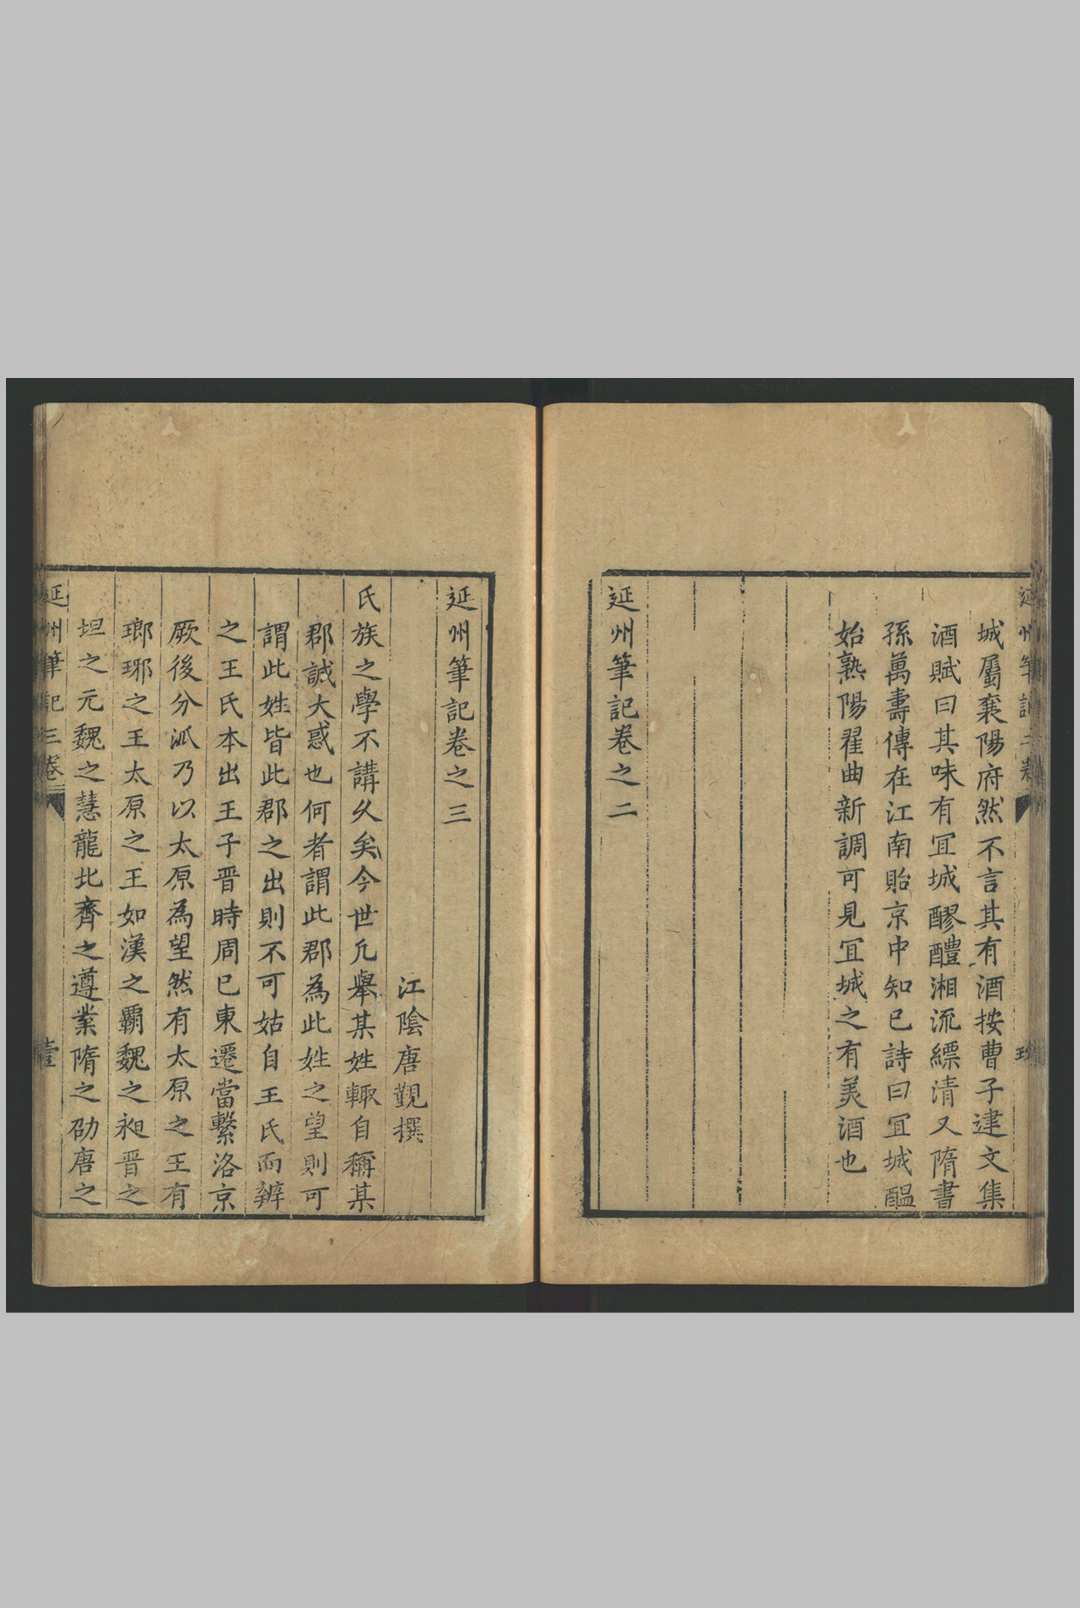 城屬襄陽府然不言其有酒按曹子建文集
酒賦曰其味有冝城醪醴湘流縹清又隋書
孫萬壽傳在江南貽京中知已詩曰冝城醖
始熟陽翟曲新調可見冝城之有美酒也
延州筆記卷之二
延州筆記卷之三
江陰唐覲撰
氏族之學不講久矣今世凢舉某姓輙自稱某
郡誠大惑也何者謂此郡為此姓之望則可
謂此姓皆此郡之出則不可姑自王氏而辨
之王氏本出王子晋時周已東遷當繫洛京
厥後分派乃以太原為望然有太原之王有
瑯琊之王太原之王如漢之覇魏之昶晋之
坦之元魏之慧龍北齊之遵業隋之劭唐之
延州筆記三卷
壹